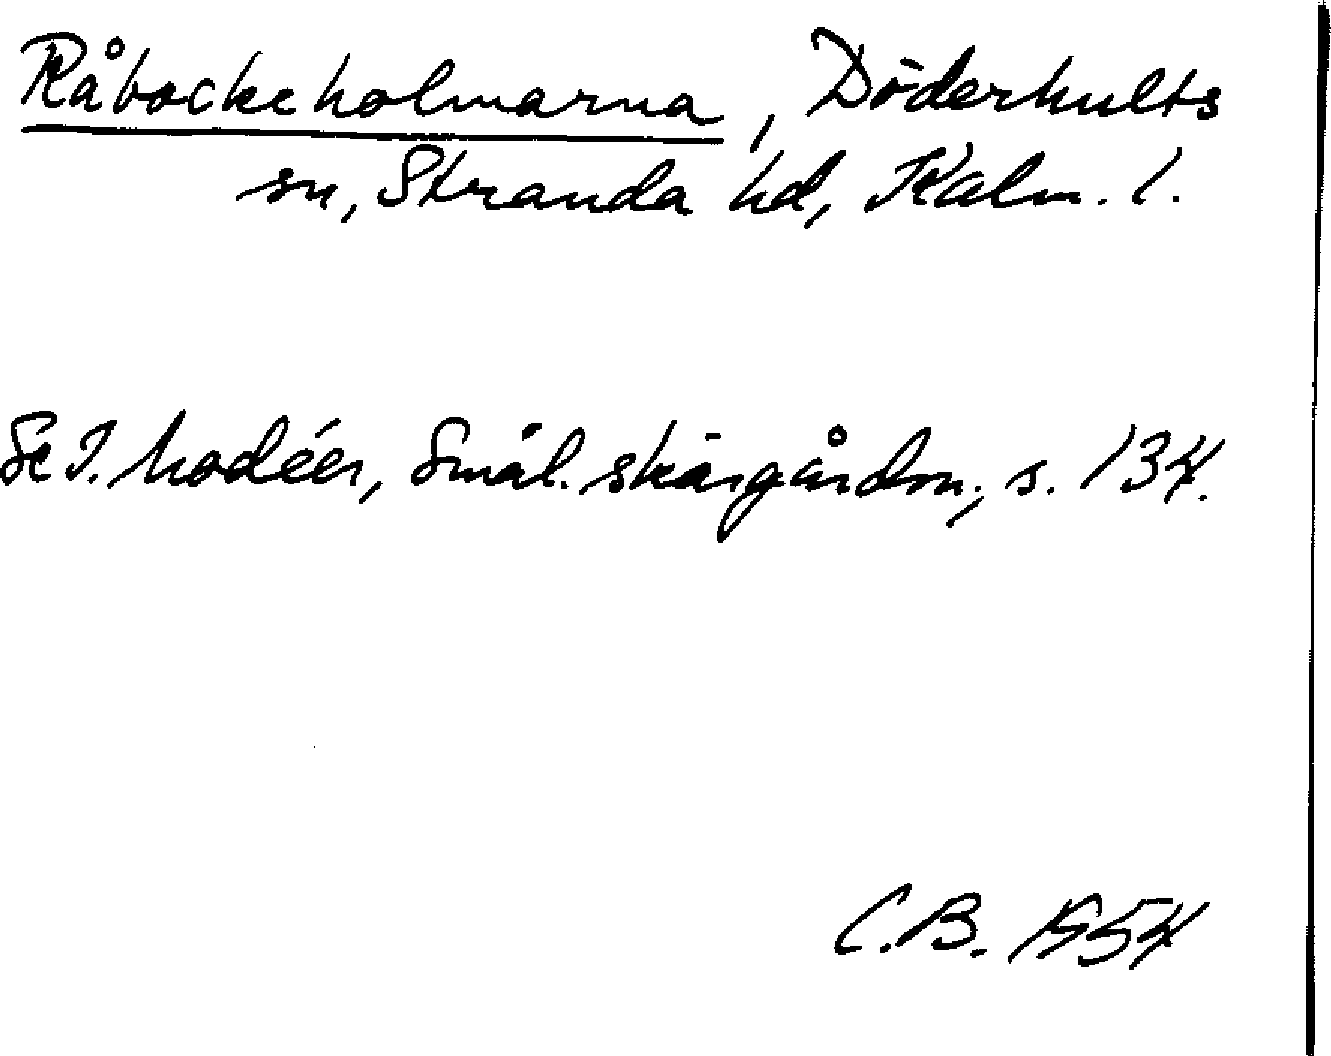 Råbockeholmarna, Döderhults
sn, Stranda hd, Kalm. l.
Se I. Modéer, Smål. skärgårdsn., s. 134.
C.B. 1954